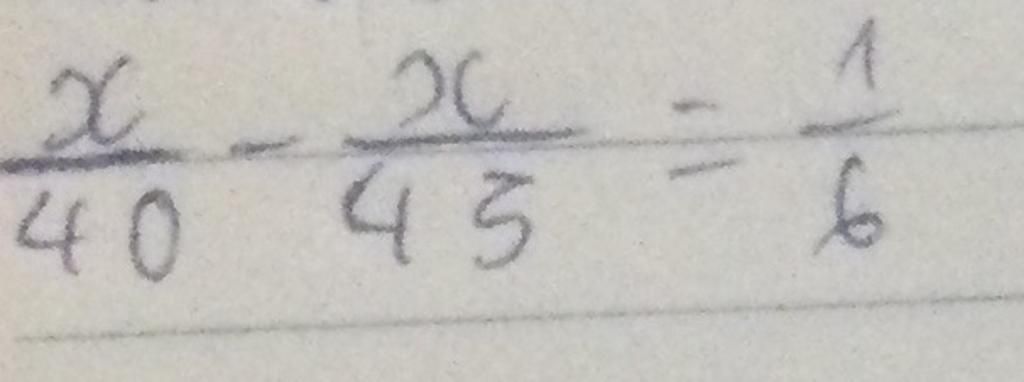 x/40 - x/45 = 1/6